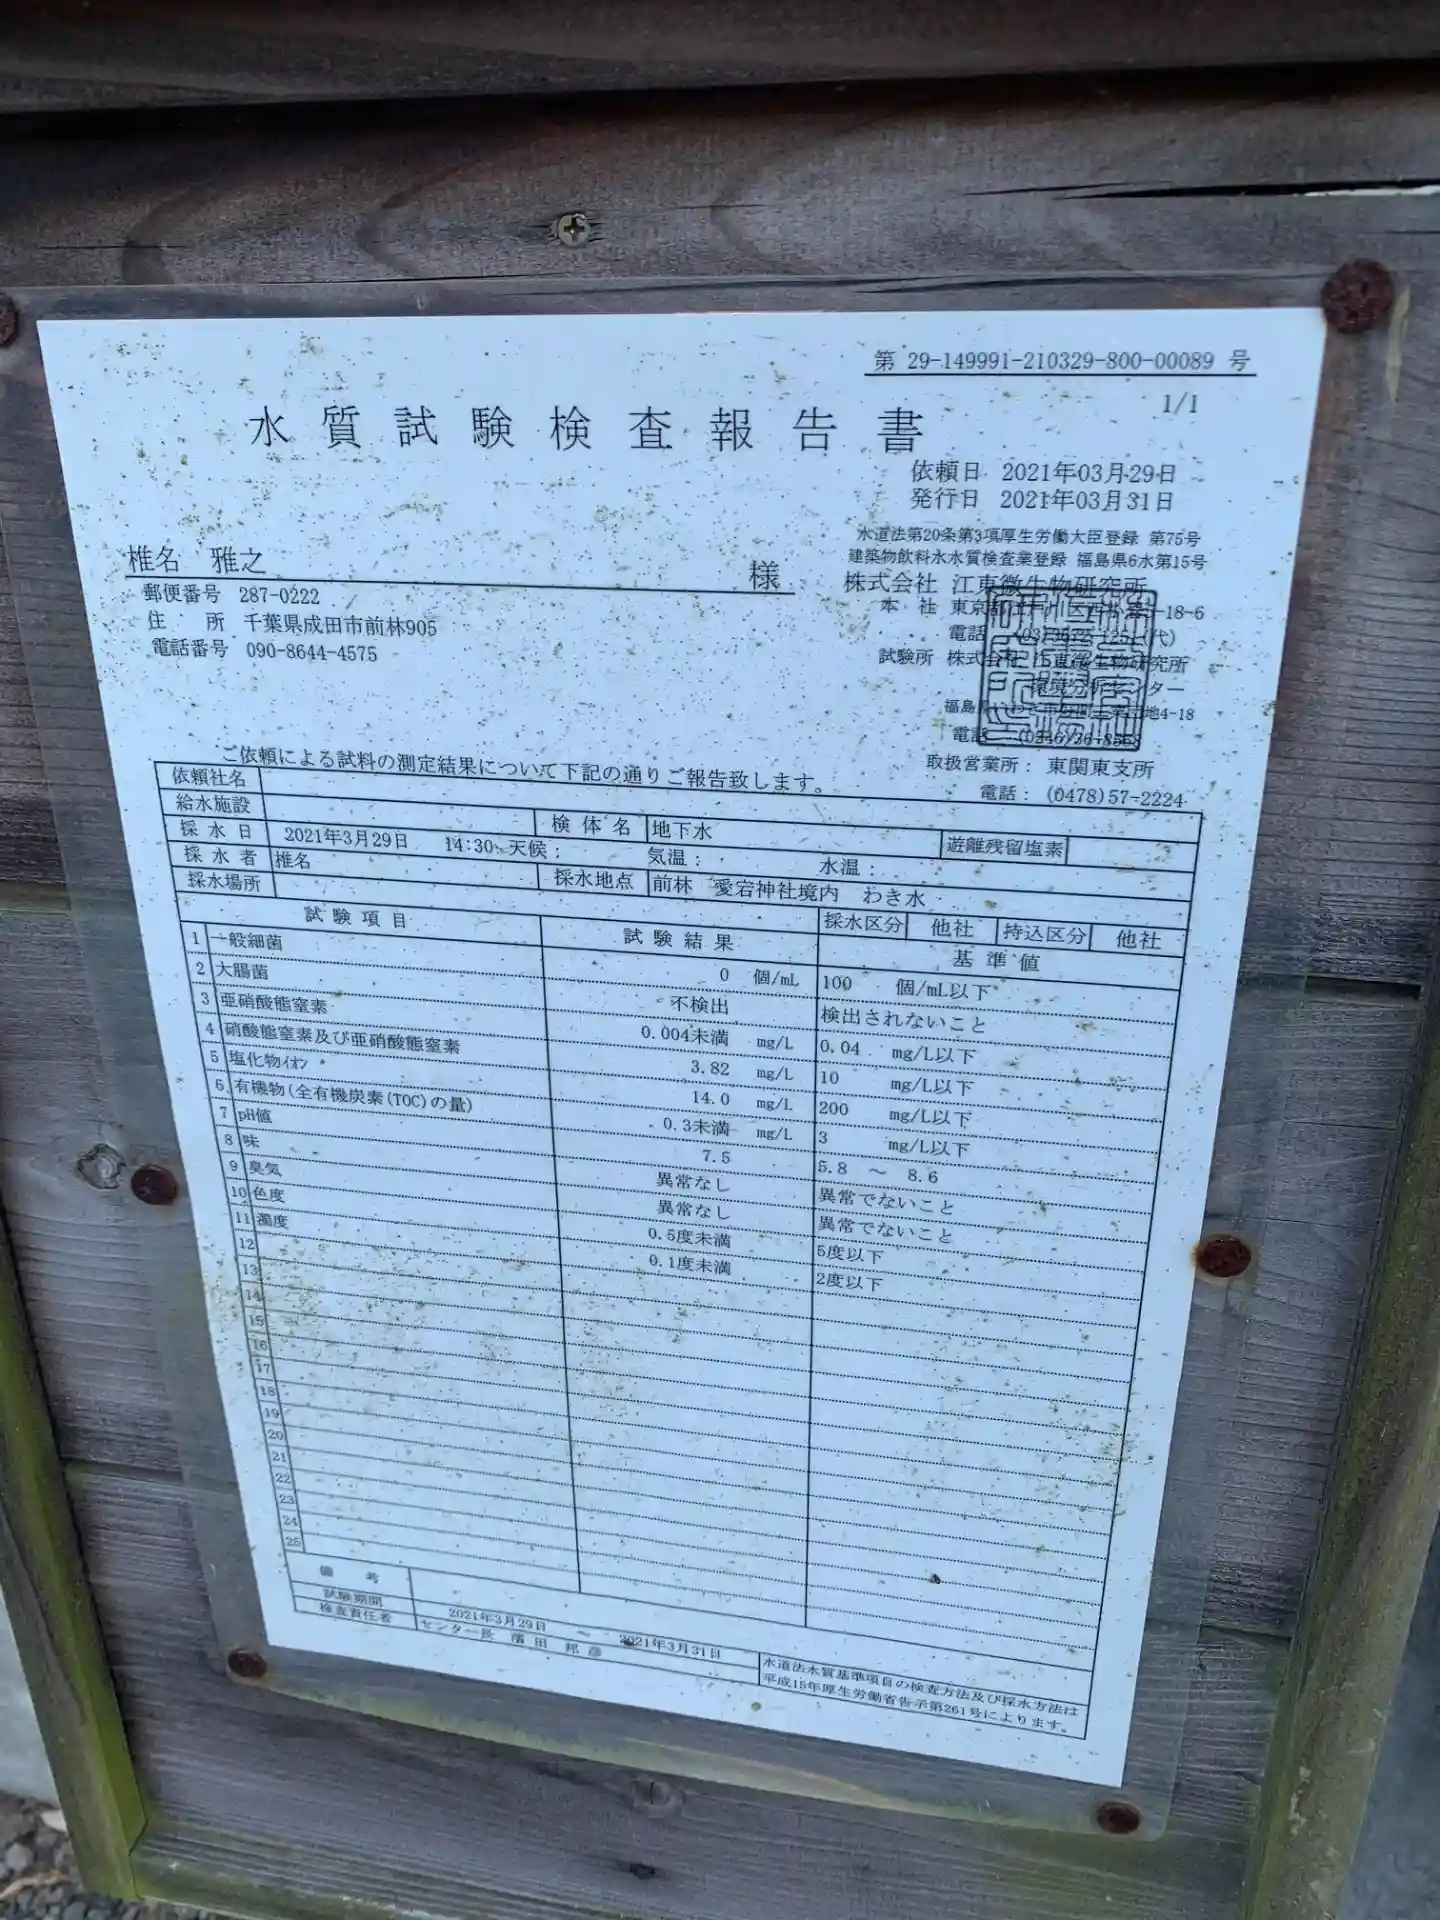 第 29-149991-210329-800-00089 号
1/1
水質試験検査報告書
依頼日 2021年03月29日
発行日 2021年03月31日
水道法第20条第3項厚生労働大臣登録 第75号
建築物飲料水水質検査業登録 福島県6水第15号
椎名 雅之 様
株式会社 江東微生物研究所
郵便番号 287-0222
本 社 東京都
18-6
住 所 千葉県成田市前林905
電話
(代)
電話番号 090-8644-4575
試験所 株式会社 江東微生物研究所
環境分析センター
福島
地4-18
電話
取扱営業所: 東関東支所
電話: (0478)57-2224
ご依頼による試料の測定結果について下記の通りご報告致します。
依頼社名
給水施設 検体名 地下水 遊離残留塩素
採水日 2021年3月29日 14:30 天候: 気温: 水温:
採水者 椎名
採水場所 採水地点 前林 愛宕神社境内 わき水
採水区分 他社 持込区分 他社
試験項目 試験結果 基準値
1 一般細菌 0 個/mL 100 個/mL以下
2 大腸菌 不検出 検出されないこと
3 亜硝酸態窒素 0.004未満 mg/L 0.04 mg/L以下
4 硝酸態窒素及び亜硝酸態窒素 3.82 mg/L 10 mg/L以下
5 塩化物ｲｵﾝ 14.0 mg/L 200 mg/L以下
6 有機物(全有機炭素(TOC)の量) 0.3未満 mg/L 3 mg/L以下
7 pH値 7.5 5.8 ～ 8.6
8 味 異常なし 異常でないこと
9 臭気 異常なし 異常でないこと
10 色度 0.5度未満 5度以下
11 濁度 0.1度未満 2度以下
12
13
14
15
16
17
18
19
20
21
22
23
24
25
備 考
試験期間 2021年3月29日 ～ 2021年3月31日
検査責任者 センター長 濱田 邦彦
水道法水質基準項目の検査方法及び採水方法は
平成15年厚生労働省告示第261号によります。